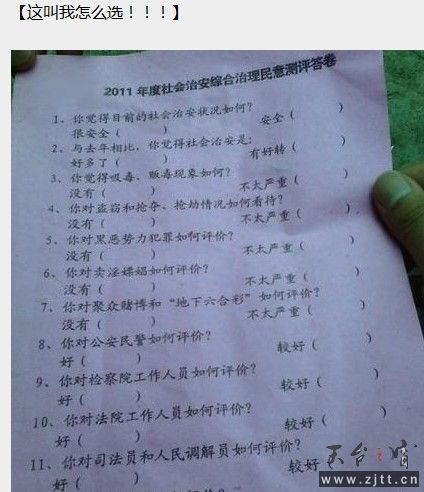 【这叫我怎么选！！！】
2011年度社会治安综合治理民意测评答卷
1、你觉得目前的社会治安状况如何？
很安全（ ） 安全（ ）
2、与去年相比，你觉得社会治安是：
好多了（ ） 有好转（ ）
3、你觉得吸毒、贩毒现象如何？
没有（ ） 不太严重（ ）
4、你对盗窃和抢夺、抢劫情况如何看待？
没有（ ） 不太严重（ ）
5、你对黑恶势力犯罪如何评价？
没有（ ） 不太严重（ ）
6、你对卖淫嫖娼如何评价？
没有（ ） 不太严重（ ）
7、你对聚众赌博和“地下六合彩”如何评价？
没有（ ） 不太严重（ ）
8、你对公安民警如何评价？
好（ ） 较好（ ）
9、你对检察院工作人员如何评价？
好（ ） 较好（ ）
10、你对法院工作人员如何评价？
好（ ） 较好（ ）
11、你对司法员和人民调解员如何评价？
好（ ） 较好（
www.zjtt.cn